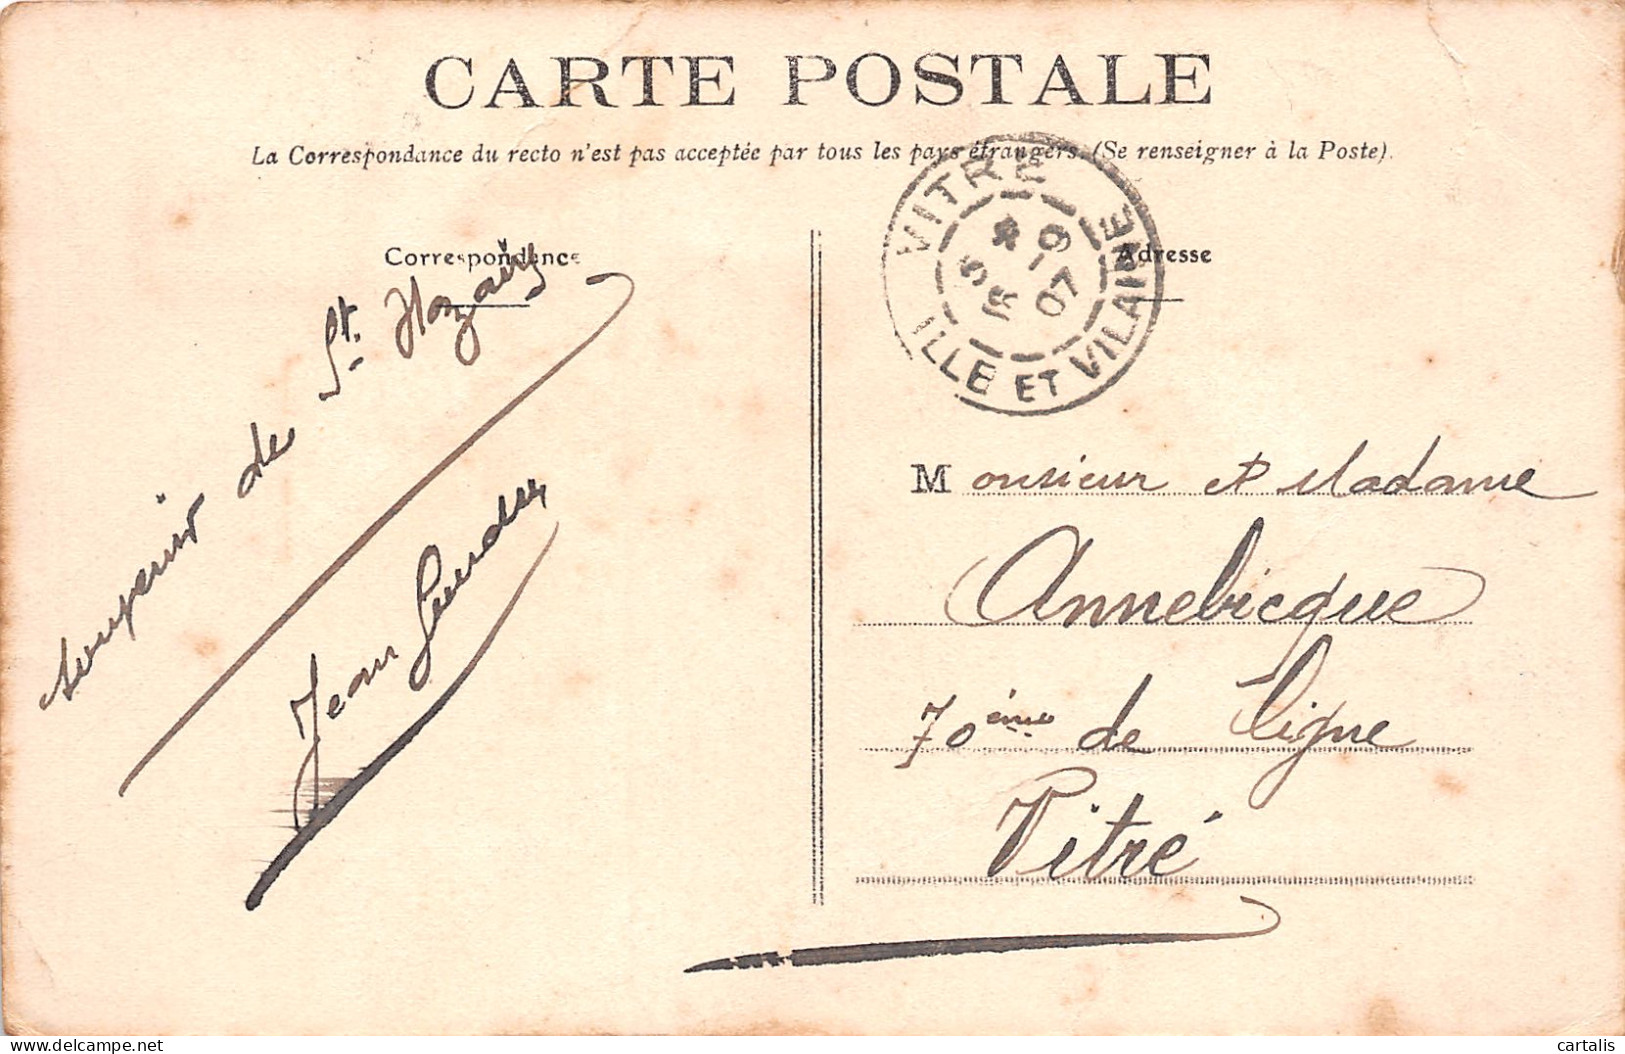 CARTE POSTALE
La Correspondance du recto n'est pas acceptée par tous les pays étrangers. (Se renseigner à la Poste).
Correspondance
Adresse
VITRE
ILLE ET VILAINE
souvenir de St.
Jean
Monsieur et Madame
Annebicque
70ème de ligne
Vitré
cartalis